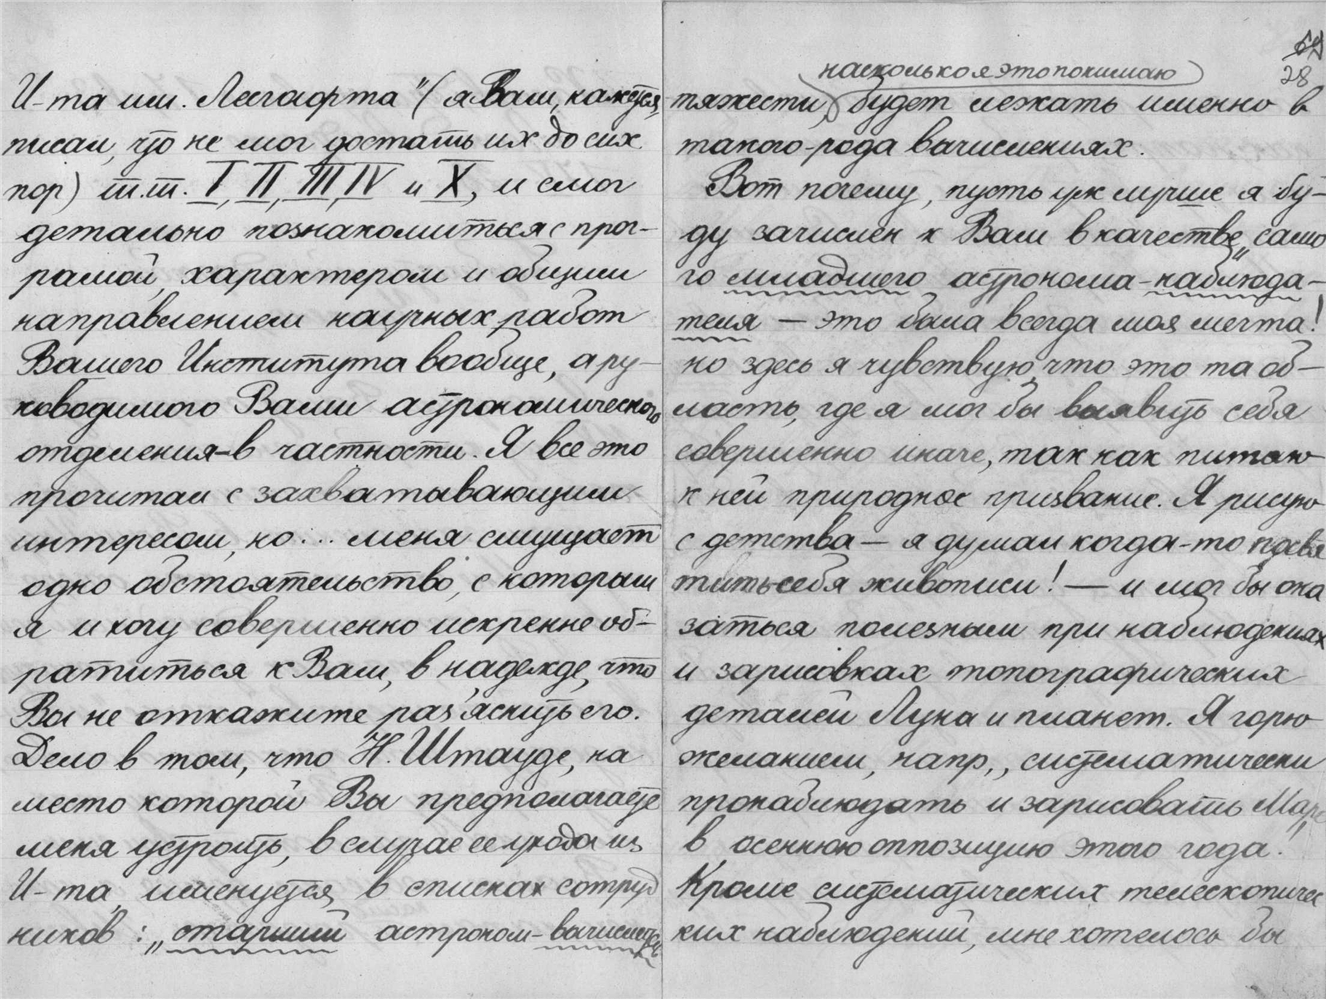 И-та им. Лесгафта" (я Вам, кажется,
писал, что не мог достать их до сих
пор) т.т. I, II, III, IV и X, и смог
детально познакомиться с прог-
рамой, характером и общим
направлением научных работ
Вашего Института вообще, а ру-
ководимого Вами астрономического
отделения - в частности. Я все это
прочитал с захватывающим
интересом, но... меня смущает
одно обстоятельство, с которым
я и хочу совершенно искренне об-
ратиться к Вам, в надежде, что
Вы не откажите раз'яснить его.
Дело в том, что Н. Штауде, на
место которой Вы предполагаете
меня устроить, в случае ее ухода из
И-та, именуется в списках сотруд
ников: „старший астроном-вычислитель
28
насколько я это понимаю
тяжести, будет лежать именно в
такого-рода вычислениях.
Вот почему, пусть уж лучше я бу-
ду зачислен к Вам в качестве „само
го младшего" астронома-наблюда-
теля — это была всегда моя мечта!
но здесь я чувствую, что это та об-
ласть, где я мог бы выявить себя
совершенно иначе, так как питаю
к ней природное призвание. Я рисую
с детства — я думал когда-то посвя
тить себя живописи! — и мог бы ока
заться полезным при наблюдениях
и зарисовках топографических
деталей Луны и планет. Я горю
желанием, напр., систематически
пронаблюдать и зарисовать Марс
в осеннюю оппозицию этого года!
Кроме систематических телескопичес
ких наблюдений, мне хотелось бы